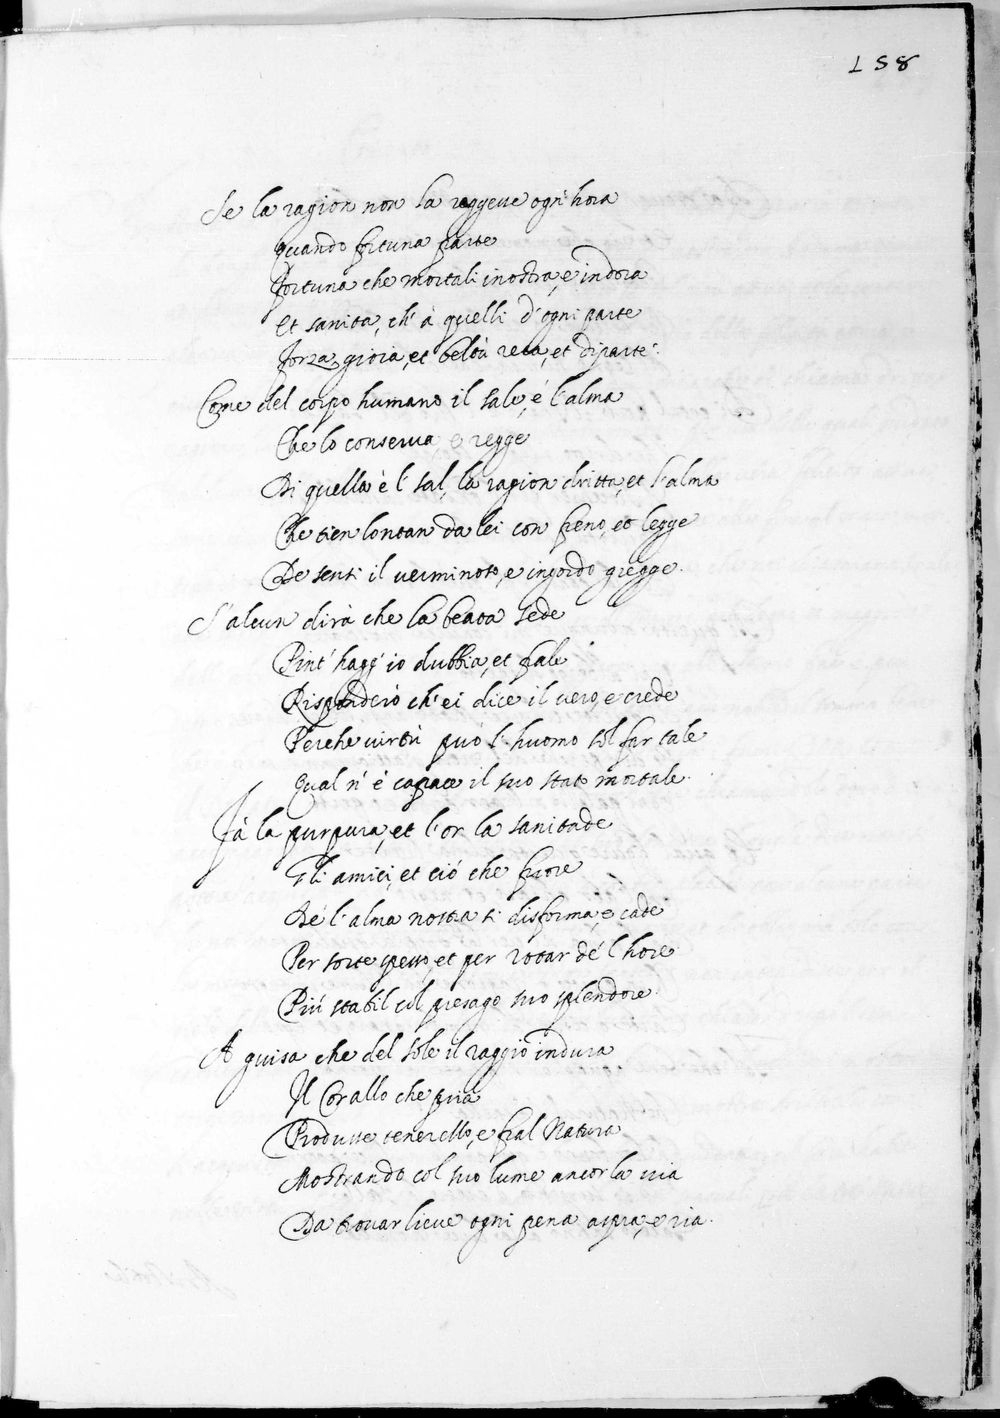 158
Se la ragion non la reggesse ogni hora
quando fortuna parte
Fortuna che mortali inostra, e indora
Et sanita, ch' à quelli d'ogni parte
Forza, gioia, et beltà reca, et diparte.
Come del corpo humano il sale, é l'alma
Che lo conserua, e regge
Di quella è l' sal, la ragion dritta, et l'alma
Che tien lontan da lei con freno, et legge
De sensi il uerminoso, e ingordo gregge.
S'alcun dirà che la beata sede
Pint' hagg' io dubbia, et frale
Risponderò ch' ei dice il uero, e crede
Perche uirtù può l' huomo sol far tale
Qual n' é capace il suo stato mortale.
Fà la purpura, et l'or la sanitade
Gli amici, et ció che fuore
Dé l'alma nostra si disforma, e cade
Per sorte spesso, et per rotar dé l'hore
Più stabil col presago suo splendore.
A guisa che del sole il raggio indura
Il Corallo che pria
Produsse tenerello, e fral Natura
Mostrando col suo lume ancor la uia
Da trouar lieue ogni pena aspra, e ria.